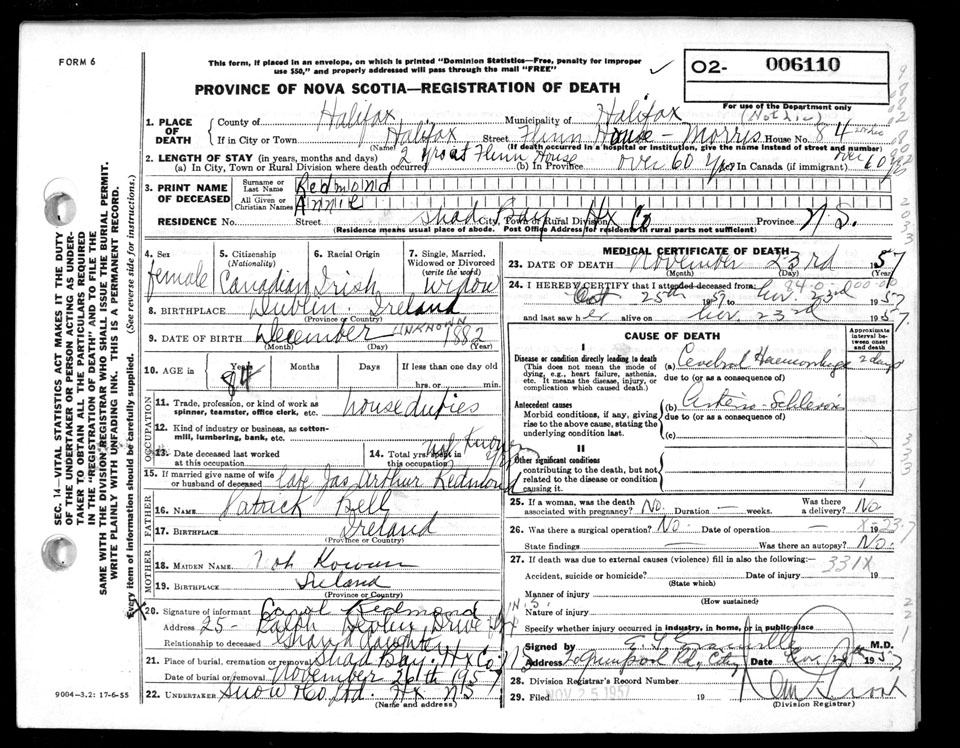 FORM 6
This form, if placed in an envelope, on which is printed "Dominion Statistics—Free, penalty for improper
use $50," and properly addressed will pass through the mail "FREE"
O2- 006110
PROVINCE OF NOVA SCOTIA—REGISTRATION OF DEATH
For use of the Department only
1. PLACE OF DEATH
County of Halifax Municipality of Halifax
If in City or Town Halifax Street Flinn House - Morris House No. 84
(Name) (If death occurred in a hospital or institution, give the name instead of street and number)
2. LENGTH OF STAY (in years, months and days)
(a) In City, Town or Rural Division where death occurred 2 yrs at Flinn House (b) In Province over 60 yrs (c) In Canada (if immigrant) over 60
3. PRINT NAME OF DECEASED
Surname or Last Name Redmond
All Given or Christian Names Annie
RESIDENCE No. Street Shad Bay City, Town or Rural Division Hx Co Province N.S.
(Residence means usual place of abode. Post Office Address for residents in rural parts not sufficient)
4. Sex female
5. Citizenship (Nationality) Canadian
6. Racial Origin Irish
7. Single, Married, Widowed or Divorced (write the word) Widow
8. BIRTHPLACE Dublin Ireland
(Province or Country)
9. DATE OF BIRTH December UNKNOWN 1882
(Month) (Day) (Year)
10. AGE in Years 84 Months Days If less than one day old
hrs. or min.
OCCUPATION
11. Trade, profession, or kind of work as spinner, teamster, office clerk, etc. house duties
12. Kind of industry or business, as cotton-mill, lumbering, bank, etc.
13. Date deceased last worked at this occupation
14. Total yrs. spent in this occupation Not Known
15. If married give name of wife or husband of deceased late Jas Arthur Redmond
FATHER
16. NAME Patrick Bell
17. BIRTHPLACE Ireland
(Province or Country)
MOTHER
18. MAIDEN NAME Not Known
19. BIRTHPLACE Ireland
(Province or Country)
20. Signature of informant Carol Redmond
Address 25- Ralph Devlin Drive Hfx N.S.
Relationship to deceased Grand daughter
21. Place of burial, cremation or removal Shad Bay. Hx Co. NS
Date of burial or removal November 26th 1957
22. UNDERTAKER Snow Co Ltd. Hx NS
(Name and address)
MEDICAL CERTIFICATE OF DEATH
23. DATE OF DEATH November 23rd 1957
(Month) (Day) (Year)
24. I HEREBY CERTIFY that I attended deceased from:
Oct 25th 1957 Nov. 23rd 1957
and last saw her alive on Nov. 23rd 1957.
CAUSE OF DEATH
Approximate interval between onset and death
I
Disease or condition directly leading to death
(This does not mean the mode of dying, e.g., heart failure, asthenia, etc. It means the disease, injury, or complication which caused death.)
(a) Cerebral Haemorrhage 2 days
due to (or as a consequence of)
Antecedent causes
Morbid conditions, if any, giving rise to the above cause, stating the underlying condition last.
(b) Arterio-Sclerosis
due to (or as a consequence of)
(c)
II
Other significant conditions
contributing to the death, but not related to the disease or condition causing it.
25. If a woman, was the death associated with pregnancy? No. Duration — weeks. Was there a delivery? No
26. Was there a surgical operation? No. Date of operation — 19
State findings — Was there an autopsy? No.
27. If death was due to external causes (violence) fill in also the following:— 331X
Accident, suicide or homicide? Date of injury 19
(State which)
Manner of injury
(How sustained)
Nature of injury
Specify whether injury occurred in industry, in home, or in public place
Signed by M.D.
Address City Date 1957
28. Division Registrar's Record Number
29. Filed NOV 25 1957 19
(Division Registrar)
9004—3.2: 17-6-55
SEC. 14—VITAL STATISTICS ACT MAKES IT THE DUTY
OF THE UNDERTAKER OR PERSON ACTING AS UNDER-
TAKER TO OBTAIN ALL THE PARTICULARS REQUIRED
IN THE "REGISTRATION OF DEATH" AND TO FILE THE
SAME WITH THE DIVISION REGISTRAR WHO SHALL ISSUE THE BURIAL PERMIT.
WRITE PLAINLY WITH UNFADING INK. THIS IS A PERMANENT RECORD.
Every item of information should be carefully supplied. (See reverse side for instructions.)